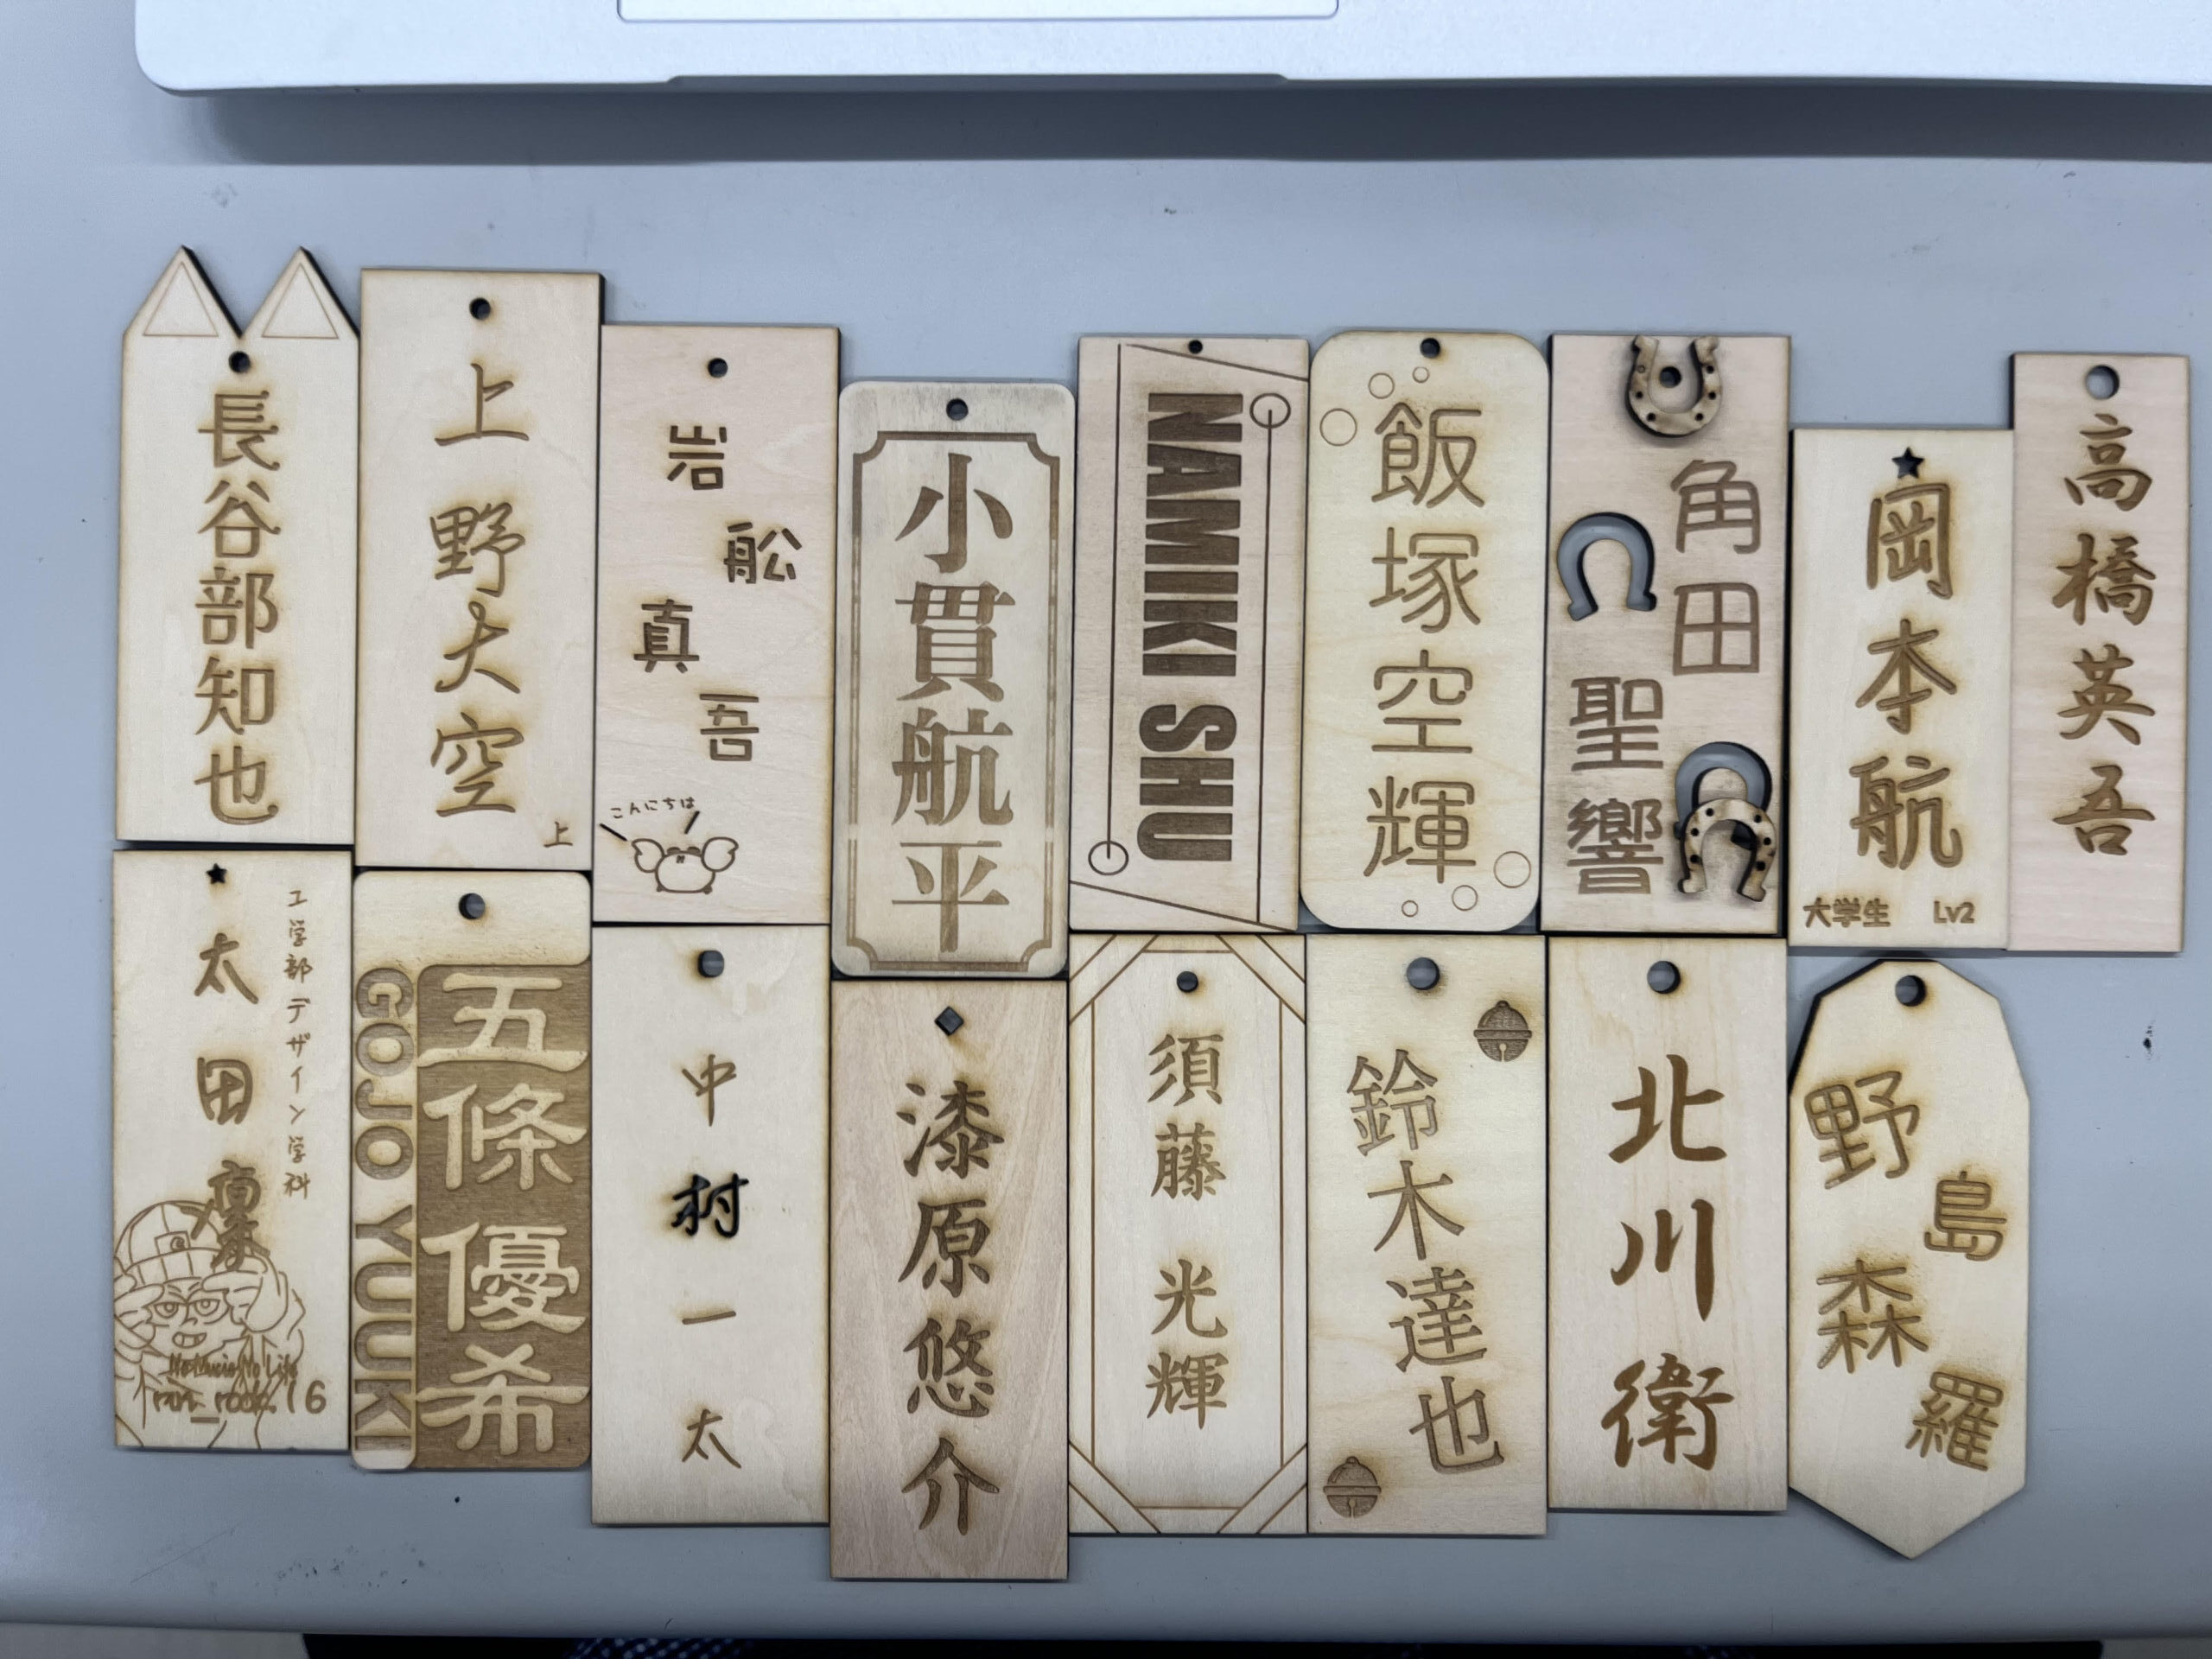 長谷部知也
上野大空
上
岩舩真吾
こんにちは
小貫航平
NAMIKI SHU
飯塚空輝
角田
聖響
岡本航
大学生 Lv2
高橋英吾
工学部デザイン学科
太田凜
No Music No Life
16
五條優希
GOJO YUUKI
中村一太
漆原悠介
須藤 光輝
鈴木達也
北川衛
野島森羅